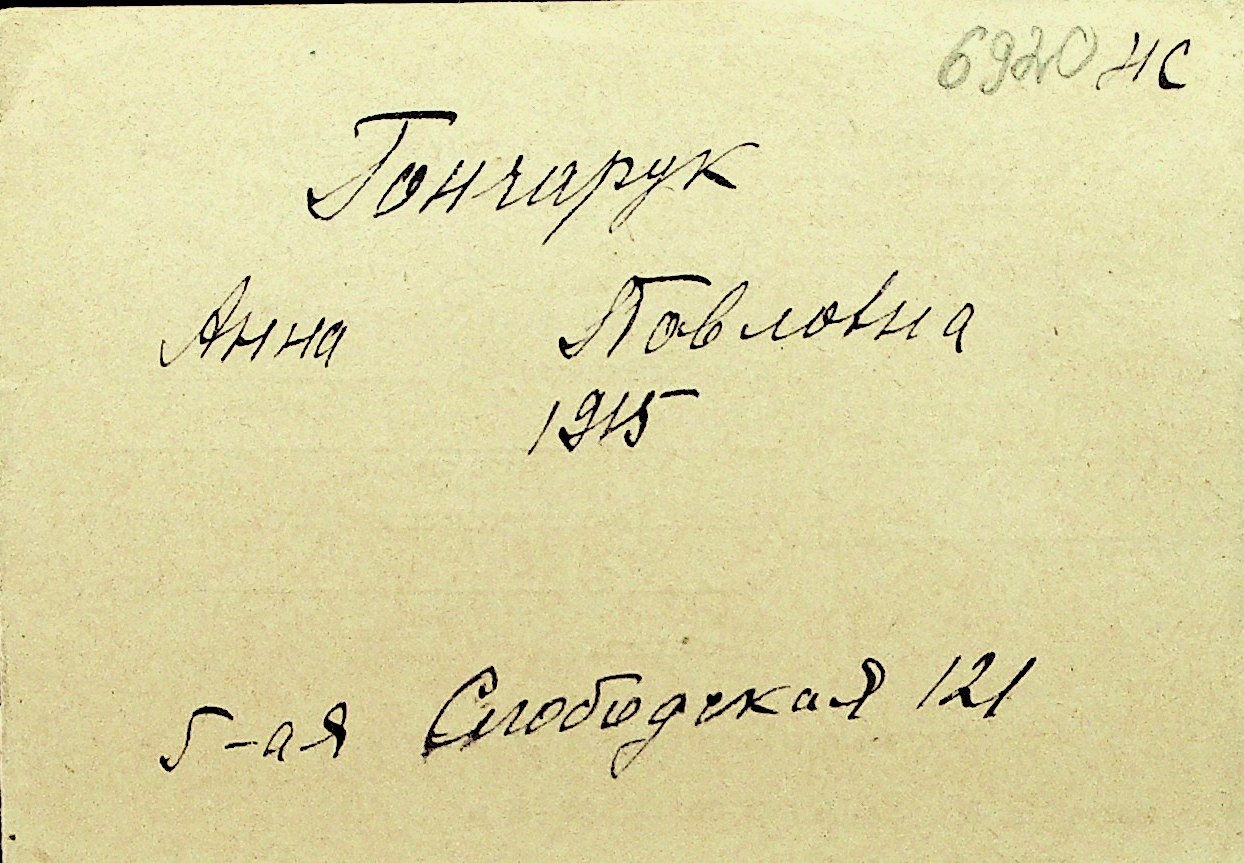 6920 нс
Гончарук
Анна Павловна
1915
5-ая Слободская 121